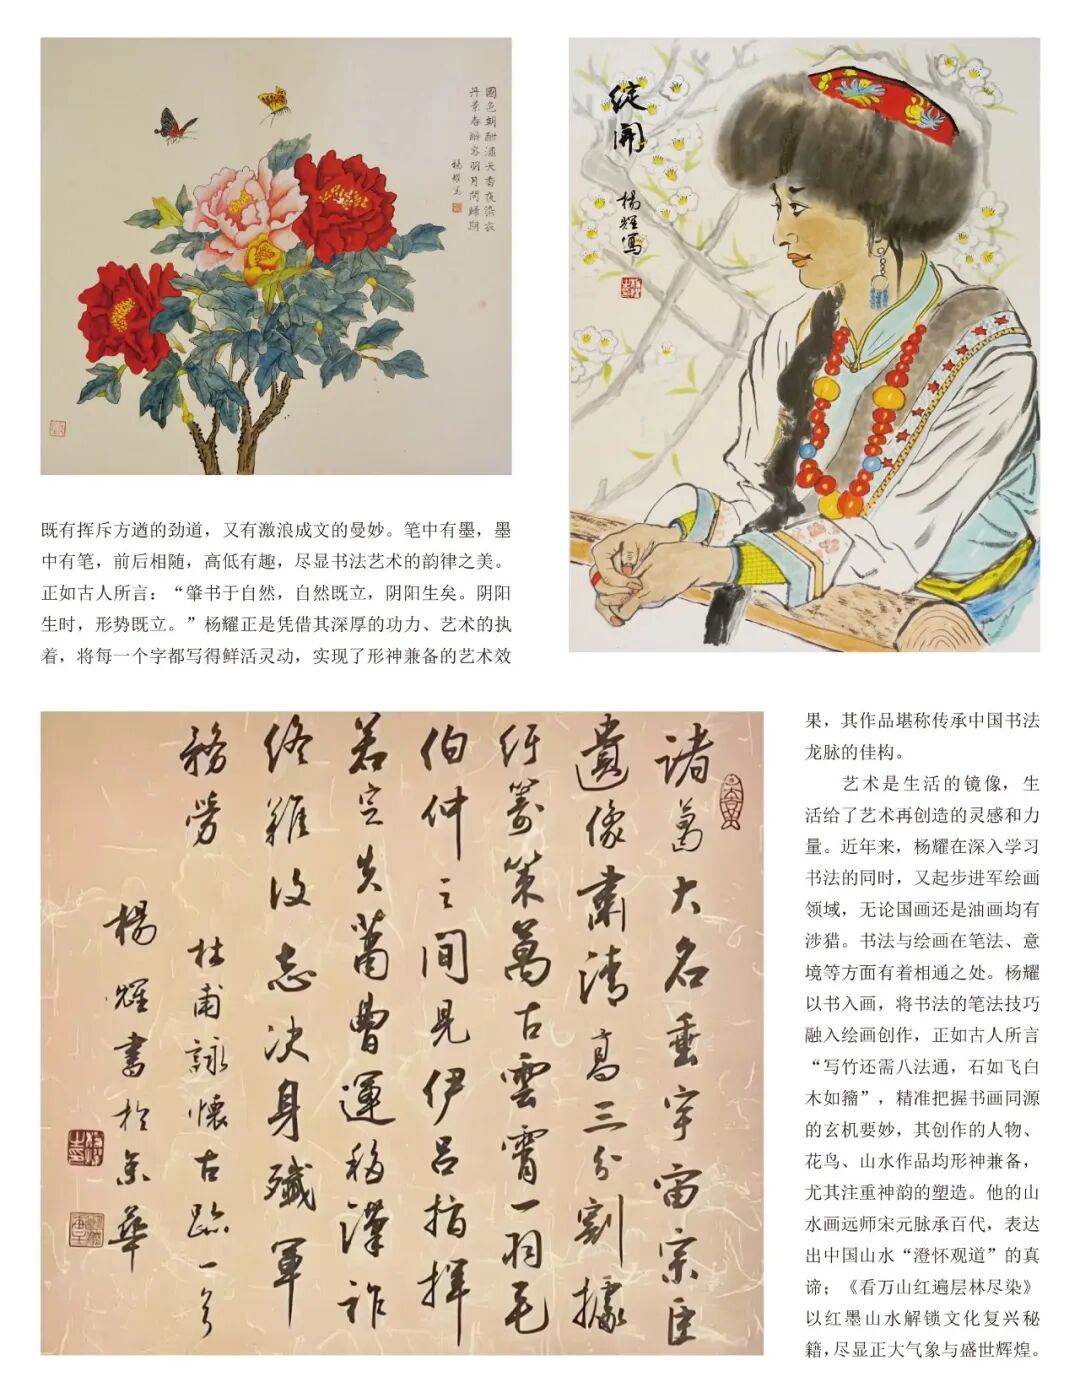 國色朝酣酒天香夜染衣
丹景春醉容明月問歸期
楊耀寫
綻開
楊耀寫
既有挥斥方遒的劲道，又有激浪成文的曼妙。笔中有墨，墨
中有笔，前后相随，高低有趣，尽显书法艺术的韵律之美。
正如古人所言：“肇书于自然，自然既立，阴阳生矣。阴阳
生时，形势既立。”杨耀正是凭借其深厚的功力、艺术的执
着，将每一个字都写得鲜活灵动，实现了形神兼备的艺术效
諸葛大名垂宇宙宗臣
遺像肅清高三分割據
紆籌策萬古雲霄一羽毛
伯仲之間見伊呂指揮
若定失蕭曹運移漢祚
終難復志決身殲軍
務勞
杜甫詠懷古跡一首
楊耀書於京華
果，其作品堪称传承中国书法
龙脉的佳构。
艺术是生活的镜像，生
活给了艺术再创造的灵感和力
量。近年来，杨耀在深入学习
书法的同时，又起步进军绘画
领域，无论国画还是油画均有
涉猎。书法与绘画在笔法、意
境等方面有着相通之处。杨耀
以书入画，将书法的笔法技巧
融入绘画创作，正如古人所言
“写竹还需八法通，石如飞白
木如籀”，精准把握书画同源
的玄机要妙，其创作的人物、
花鸟、山水作品均形神兼备，
尤其注重神韵的塑造。他的山
水画远师宋元脉承百代，表达
出中国山水“澄怀观道”的真
谛；《看万山红遍层林尽染》
以红墨山水解锁文化复兴秘
籍，尽显正大气象与盛世辉煌。